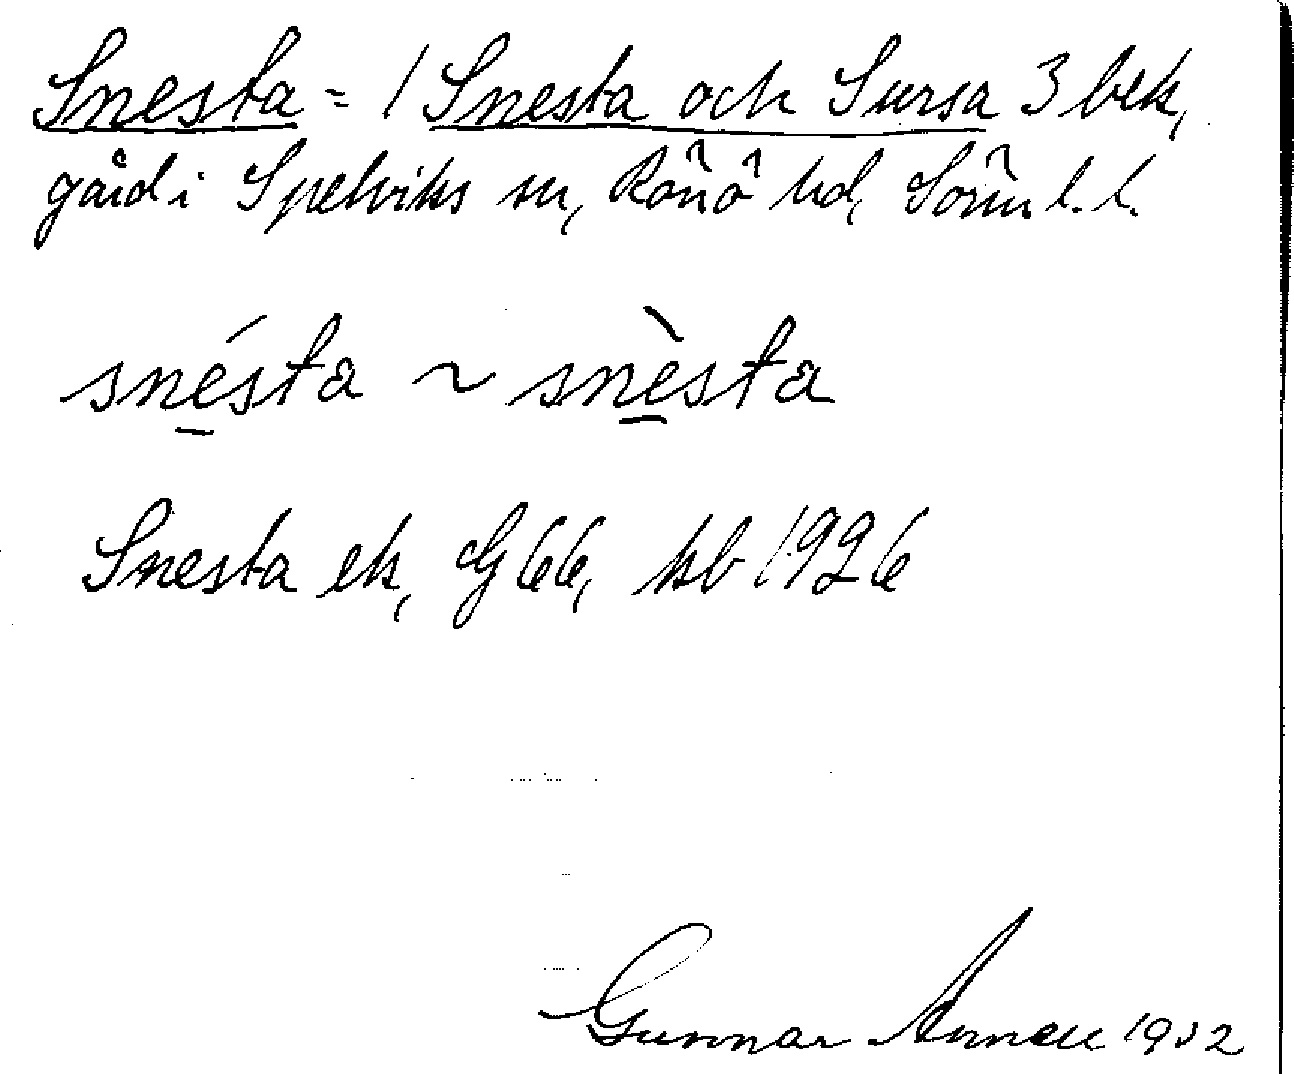 Snesta = 1 Snesta och Sursa 3 bek,
gård i Spelviks sn, Rönö hd, Sörml. l.
snésta ~ snèsta
Snesta ek, G 66, kb 1926
Gunnar 1932